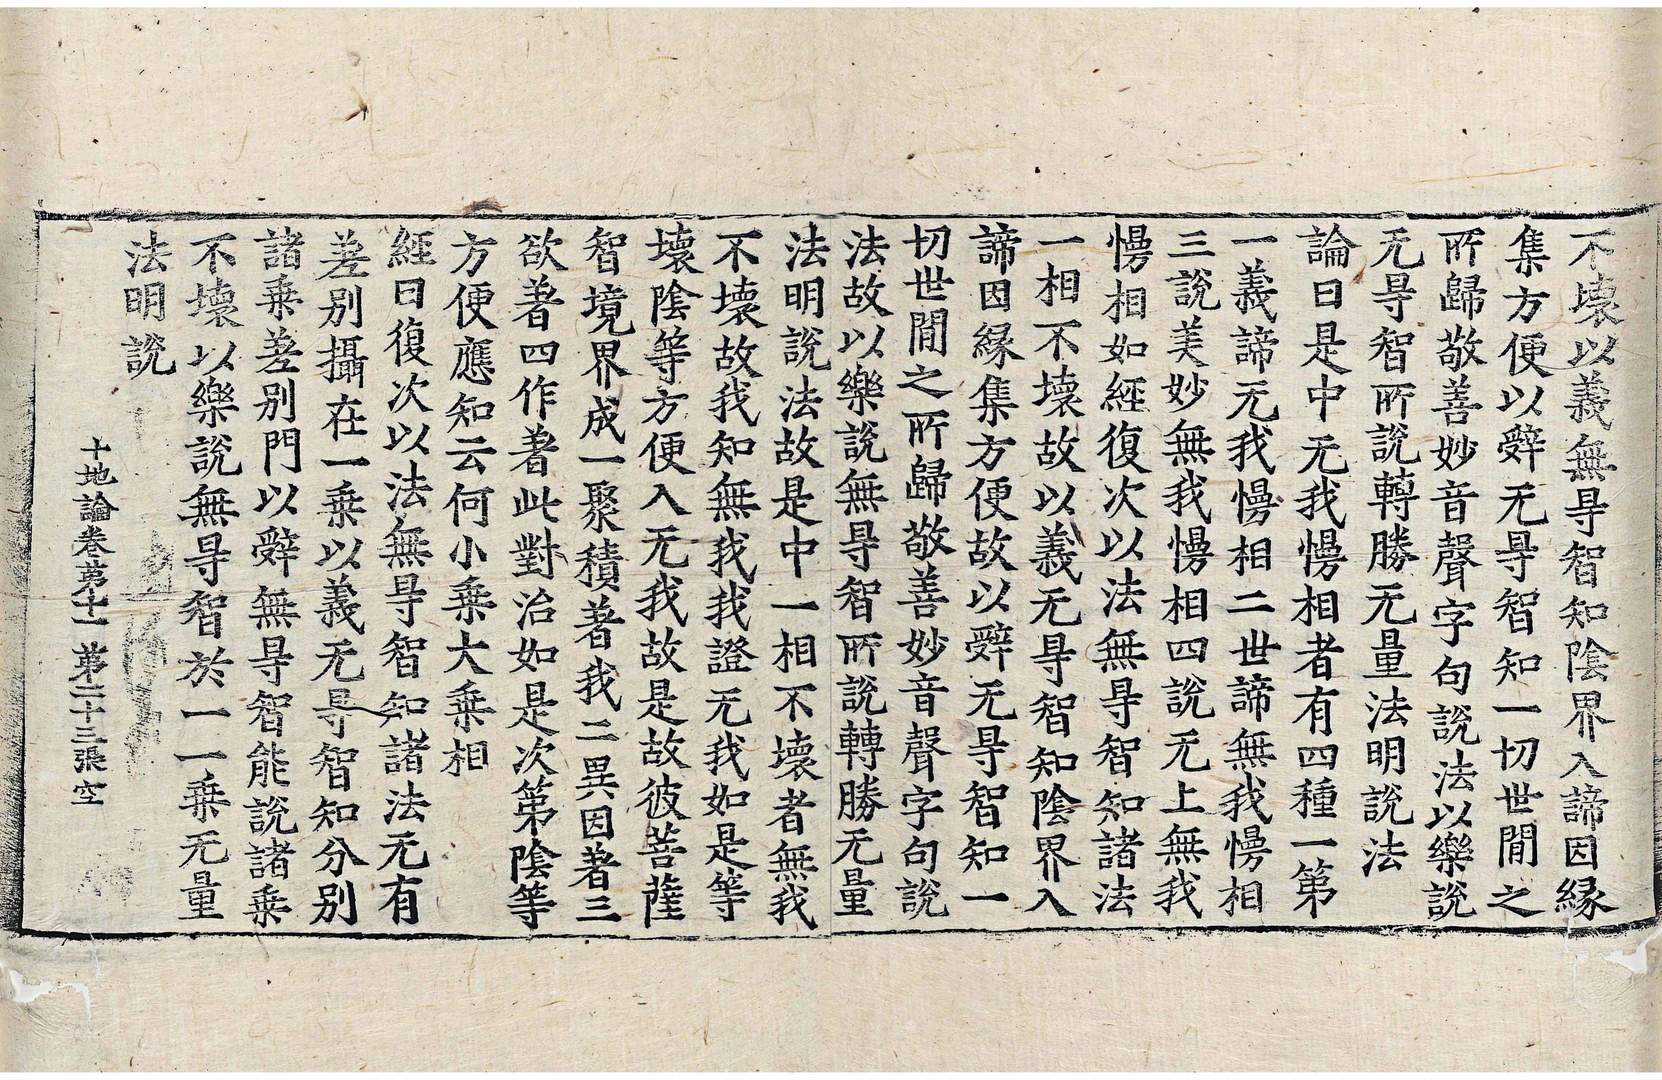 不壞以義無㝵智知陰界入諦因緣
集方便以辤无㝵智知一切世閒之
所歸敬善妙音聲字句說法以樂說
无㝵智所說轉勝无量法明說法
論曰是中无我慢相者有四種一第
一義諦无我慢相二世諦無我慢相
三說美妙無我慢相四說无上無我
慢相如經復次以法無㝵智知諸法
一相不壞故以義无㝵智知陰界入
諦因緣集方便故以辤无㝵智知一
切世閒之所歸敬善妙音聲字句說
法故以樂說無㝵智所說轉勝无量
法明說法故是中一相不壞者無我
不壞故我知無我我證无我如是等
壞陰等方便入无我故是故彼菩薩
智境界成一聚積著我二異因著三
欲著四作著此對治如是次第陰等
方便應知云何小乗大乗相
經曰復次以法無㝵智知諸法无有
差别攝在一乗以義无㝵智知分别
諸乗差别門以辤無㝵智能說諸乗
不壞以樂說無㝵智於一一乗无量
法明說
十地論卷第十一 第二十三張空